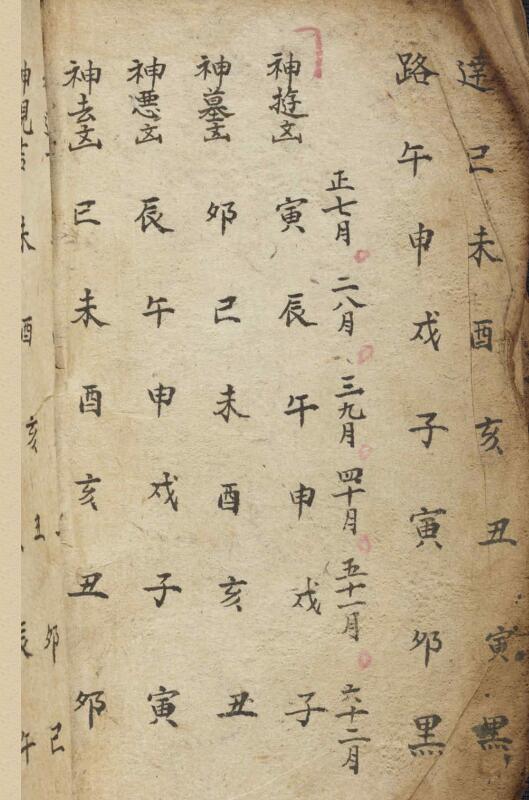 達 己 未 酉 亥 丑 寅 黑
路 午 申 戌 子 寅 卯 黑
正七月 二八月 三九月 四十月 五十一月 六十二月
神遊凶 寅 辰 午 申 戌 子
神墓吉 卯 己 未 酉 亥 丑
神悪凶 辰 午 申 戌 子 寅
神去凶 巳 未 酉 亥 丑 卯
卯 己
神見吉 未 酉 亥
辰 午